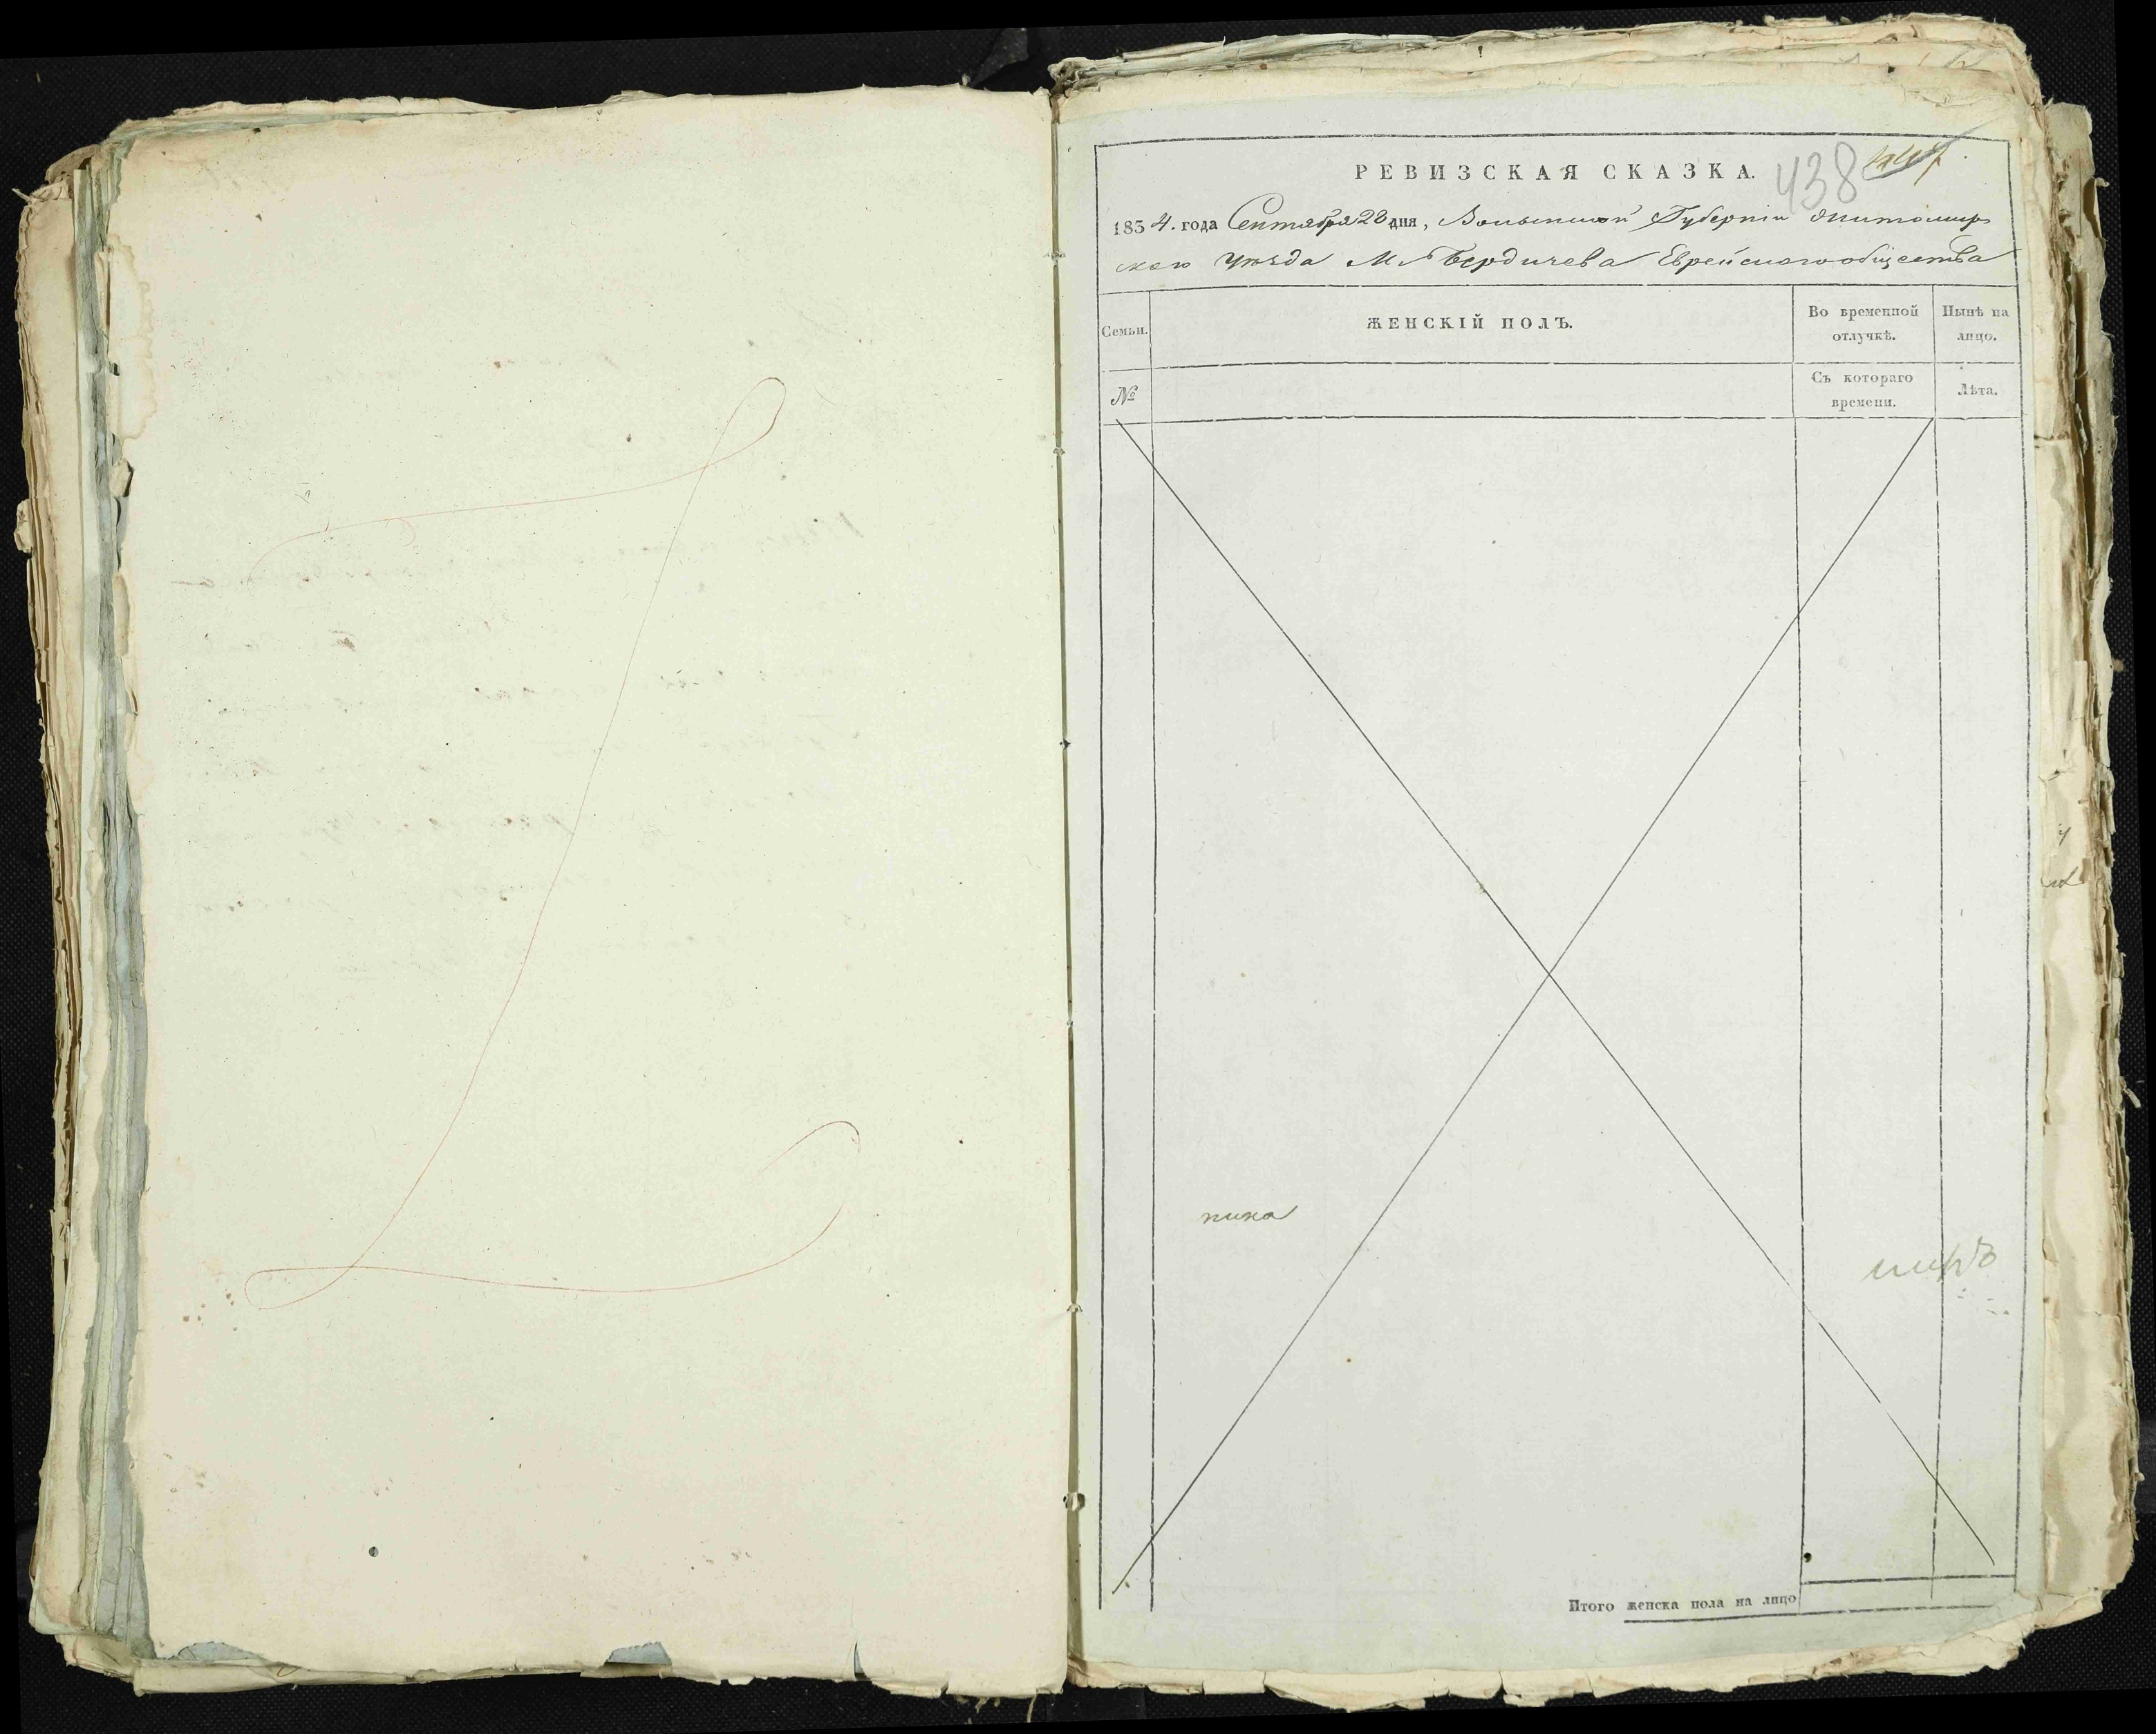 РЕВИЗСКАЯ СКАЗКА.
438
1834. года Сентября 28 дня, Волынской Губернiи Житомир
скаго Уѣзда М. Бердичева Еврейскаго общества
Семьи.
ЖЕНСКIЙ ПОЛЪ.
Во временной отлучкѣ.
Нынѣ на лицо.
№
Съ котораго времени.
Лѣта.
Итого женска пола на лицо